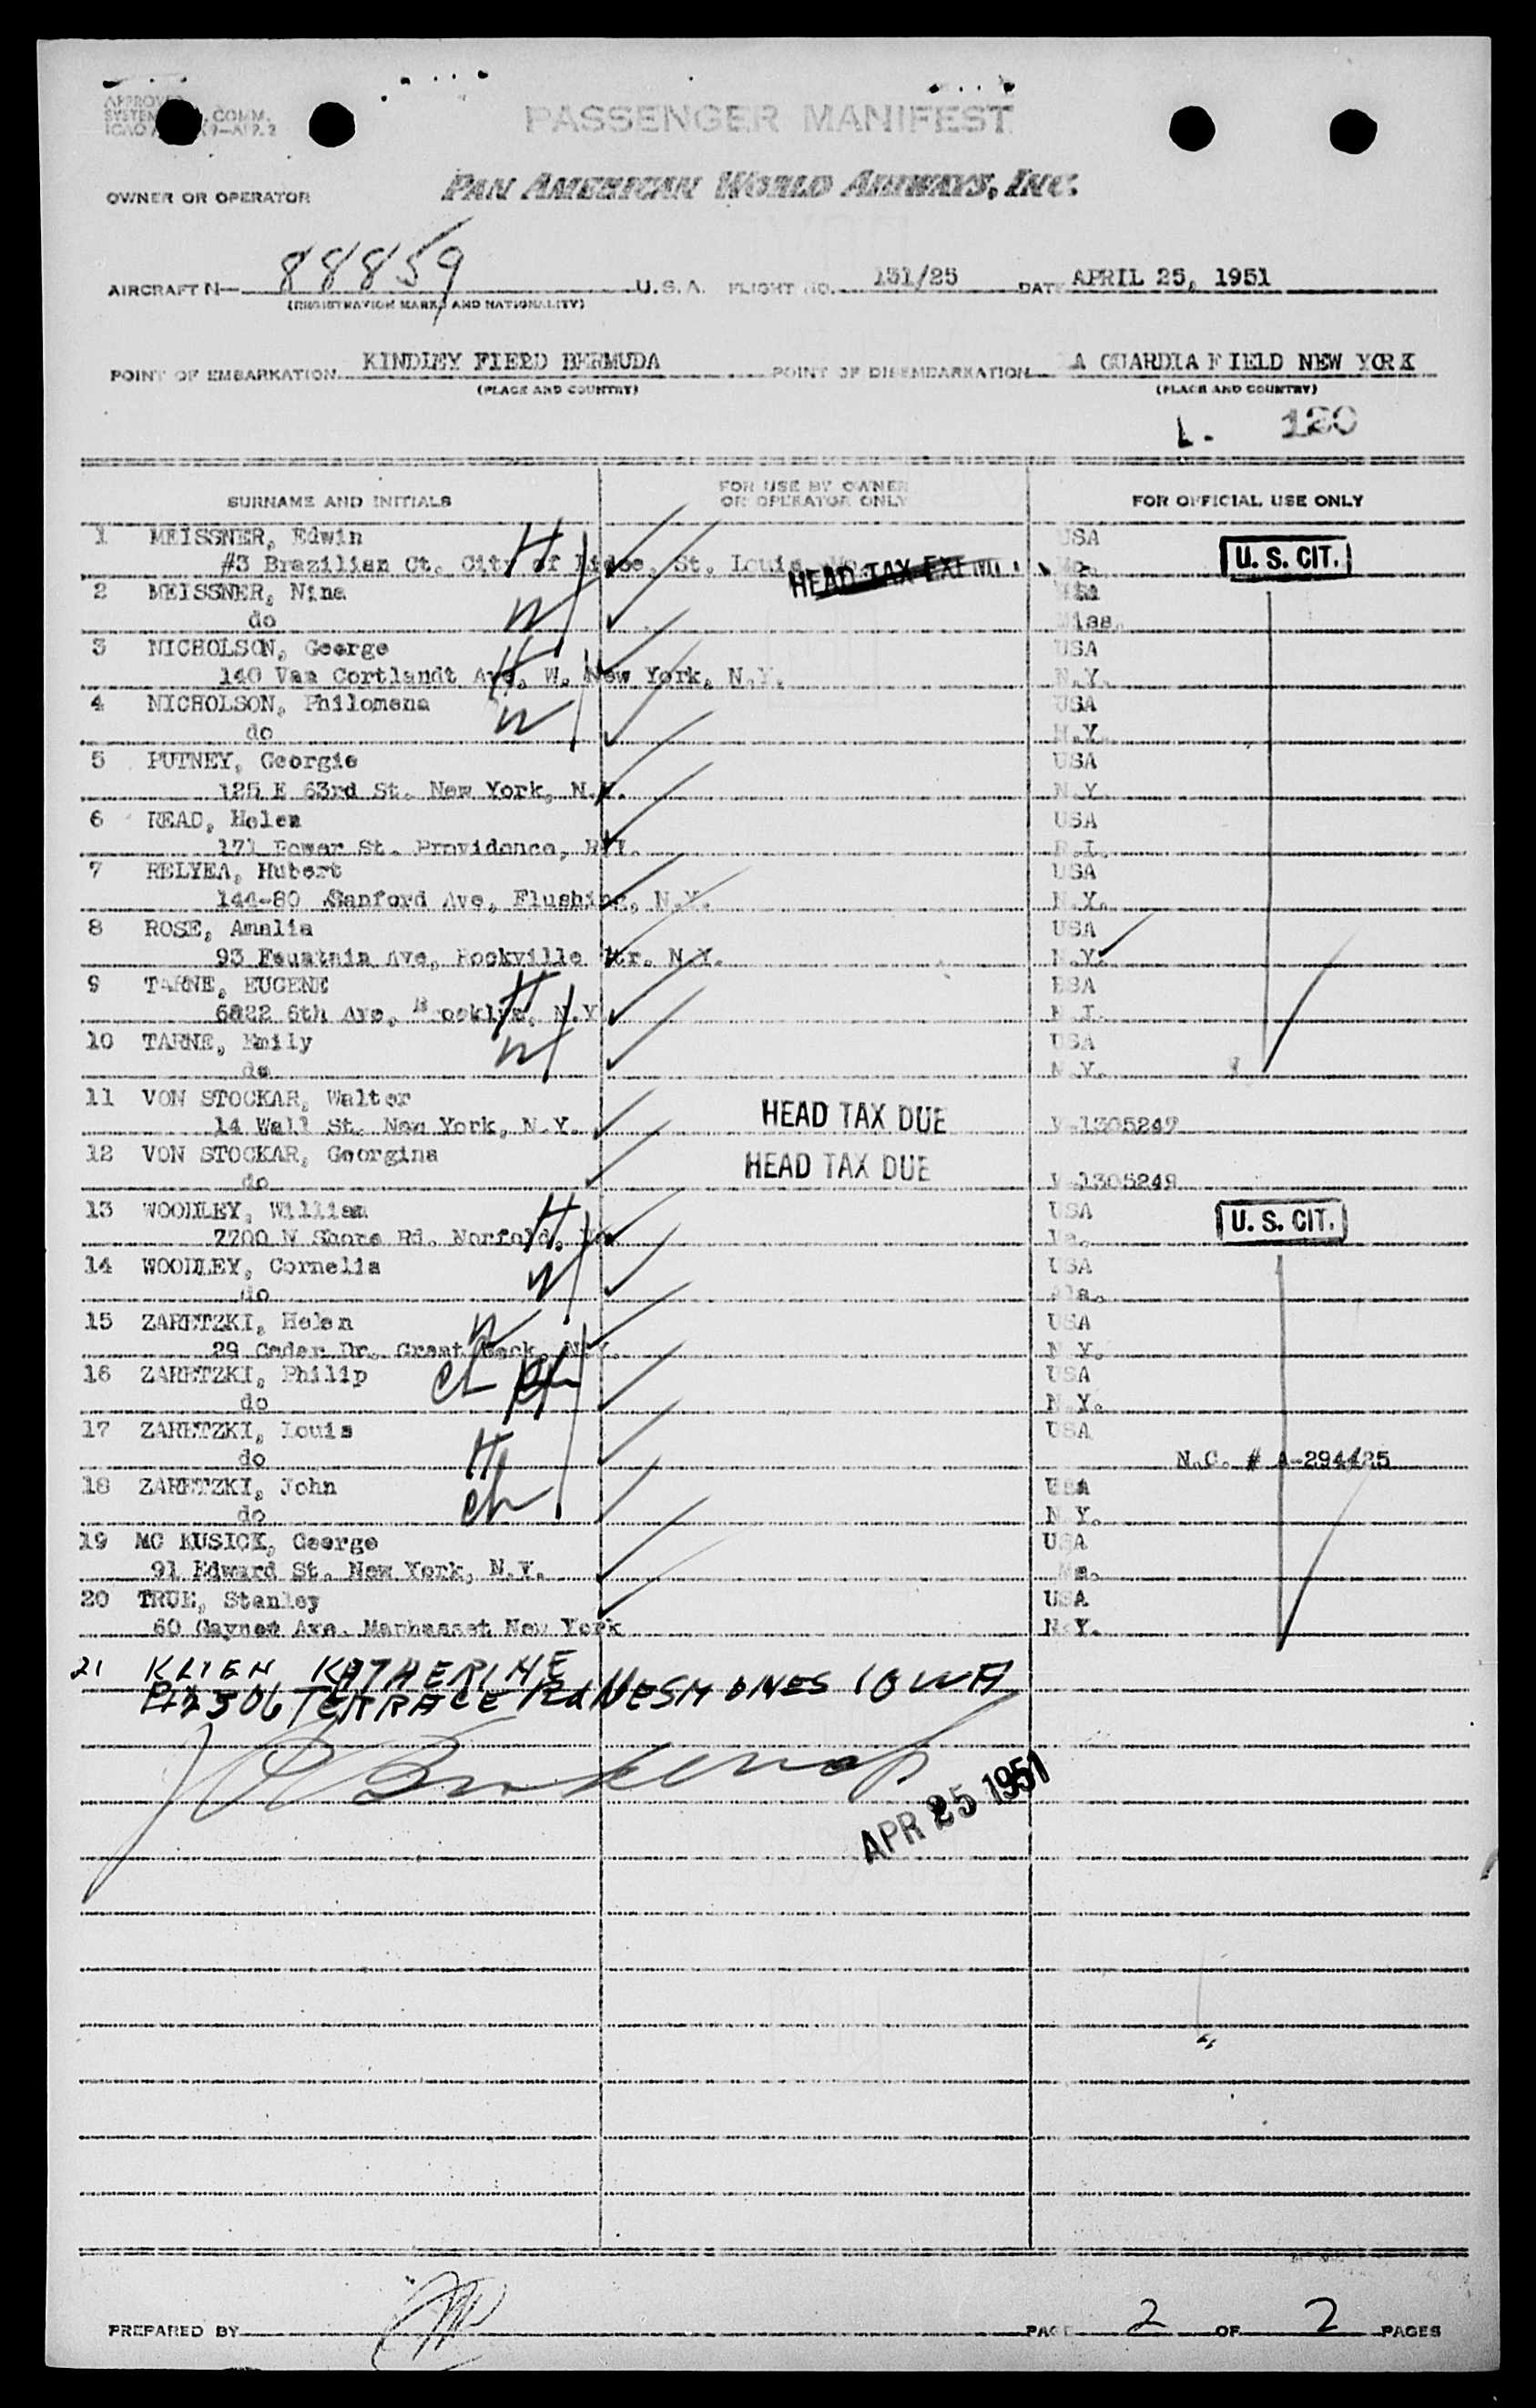 PASSENGER MANIFEST
OWNER OR OPERATOR PAN AMERICAN WORLD AIRWAYS, INC.
AIRCRAFT N- 88859 U.S.A. FLIGHT NO. 131/25 DATE APRIL 25, 1951
(REGISTRATION MARKS AND NATIONALITY)
POINT OF EMBARKATION KINDLEY FIELD BERMUDA POINT OF DISEMBARKATION LA GUARDIA FIELD NEW YORK
(PLACE AND COUNTRY) (PLACE AND COUNTRY)
L. 120
SURNAME AND INITIALS FOR USE BY OWNER OR OPERATOR ONLY FOR OFFICIAL USE ONLY
1 MEISSNER, Edwin H USA U. S. CIT.
#3 Brazilian Ct. City of St. Louis, HEAD TAX Mo.
2 MEISSNER, Nina USA
do W Miss.
3 NICHOLSON, George H USA
140 Van Cortlandt Ave, W. New York, N.Y. N.Y.
4 NICHOLSON, Philomena W USA
do N.Y.
5 PUTNEY, Georgie USA
125 E 63rd St. New York, N.Y. N.Y.
6 READ, Helen USA
171 Power St. Providence, R.I. R.I.
7 RELYEA, Hubert USA
144-80 Sanford Ave, Flushing, N.Y. N.Y.
8 ROSE, Amalia USA
93 Ave, Rockville N.Y. N.Y.
9 TARNE, EUGENE H USA
6822 6th Ave, Brooklyn, N.Y.
10 TARNE, Emily W USA
do N.Y.
11 VON STOCKAR, Walter HEAD TAX DUE
14 Wall St. New York, N.Y. V-1305247
12 VON STOCKAR, Georgina HEAD TAX DUE
do V-1305248
13 WOODLEY, William H USA U. S. CIT.
7700 N Shore Rd. Norfold, Va. Va.
14 WOODLEY, Cornelia W USA
do Ala.
15 ZARETZKI, Helen W USA
29 Cedar Dr. Great Neck, N.Y. N.Y.
16 ZARETZKI, Philip ch USA
do N.Y.
17 ZARETZKI, Louis H USA
do N.C. # A-294425
18 ZARETZKI, John ch USA
do N.Y.
19 MC KUSICK, George USA
91 Edward St. New York, N.Y. Me.
20 TRUE, Stanley USA
60 Ave. Manhasset New York N.Y.
21 KLIEN KATHERINE
TERRACE Rd DESM OINES IOWA
APR 25 1951
PREPARED BY PAGE 2 OF 2 PAGES